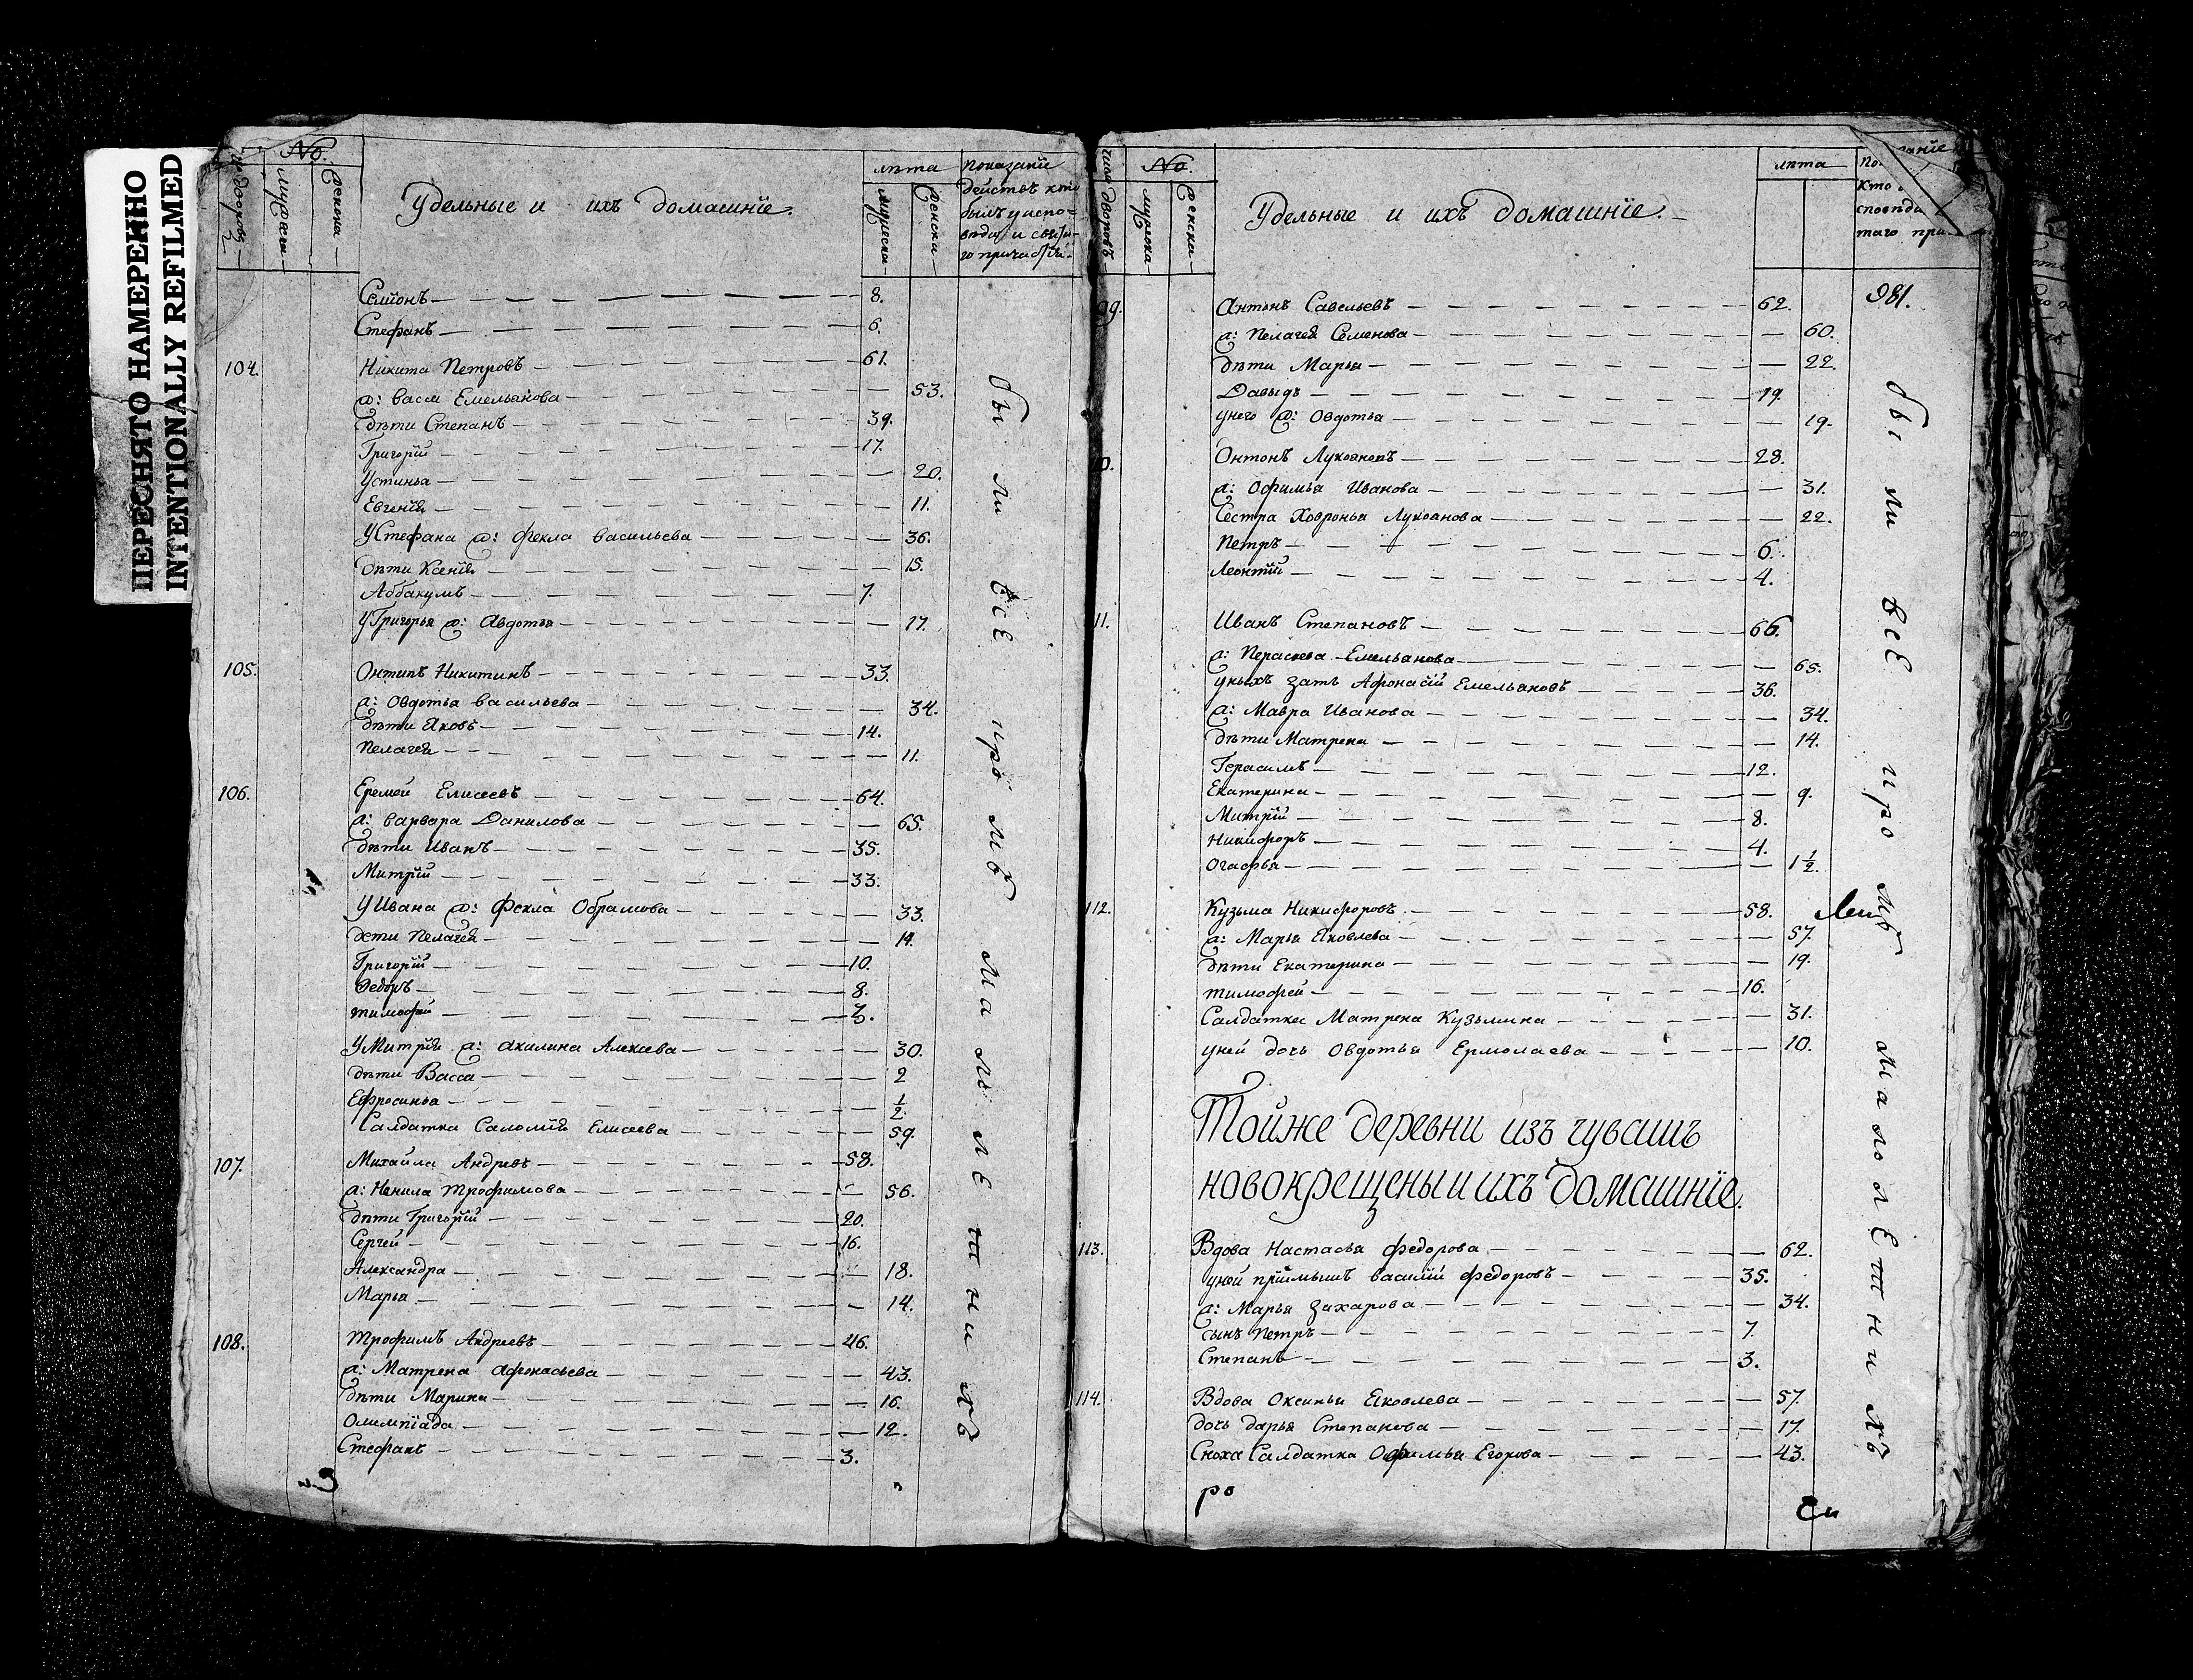 ПЕРЕСНЯТО НАМЕРЕННО
INTENTIONALLY REFILMED
No.
Удельные и ихъ домашнїе.
лѣта
показанїе
действъ кто
былъ у испо=
вѣди и свята-
го причастїя-
число дворовъ
мужеска
женска
мужеска
женска
Семионъ 8.
Стефанъ 6.
104. Никита Петровъ 61.
ж: васса Емельянова 53.
дѣти Степанъ 39.
Григорїй 17.
Устинья 20.
Евгенїя 11.
У Стефана ж: Фекла васильева 36.
дѣти Ксенїя 15.
Аввакумъ 7.
У Григорья ж: Авдотья 17.
105. Онтипъ Никитинъ 33.
ж: Овдотья васильева 34.
дѣти Яковъ 14.
Пелагея 11.
106. Еремей Елисеевъ 64.
ж: варвара Данилова 65.
дѣти Иванъ 35.
Митрїй 33.
У Ивана ж: Фекла Обрамова 33.
дети Пелагея 14.
Григорїй 10.
Федоръ 8.
тимофей 3.
У Митрїя ж: акилина Алексева 30.
дѣти Васса 2
Ефросинья 1/2.
Салдатка Саломїя Елисеева 59.
107. Михайла Андревъ 58.
ж: Ненила трофимова 56.
дѣти Григорїй 20.
Сергей 16.
Александра 18.
Марья 14.
108. трофимъ Андреевъ 46.
ж: Матрена афонасьева 43.
дѣти Марина 16.
Олимпїада 12.
Стефанъ 3.
бы ли всѣ кромѣ малолѣтнихъ
No.
Удельные и ихъ домашнїе.
лѣта
число дворовъ
мужеска
женска
981.
09. Антонъ Савельевъ 62.
ж: Пелагея Семенова 60.
дѣти Марья 22.
Давыдъ 19.
унего ж: Овдотья 19.
10. Онтонъ Лукояновъ 28.
ж: Офимья Иванова 31.
Сестра Ховронья Лукоянова 22.
Петръ 6.
Леонтїй 4.
11. Иванъ Степановъ 66.
ж: Параскева Емельянова 65.
унихъ зять Афонасїй Емельяновъ 36.
ж: Мавра Иванова 34.
дѣти Матрена 14.
Герасимъ 12.
Екатерина 9.
Митрїй 8.
Никифоръ 4.
Огафья 1 1/2.
112. Кузьма Никифоровъ 58.
ж: Марья Яковлева 57.
дѣти Екатерина 19.
тимофей 16.
Салдатка Матрена Кузьмина 31.
уней дочь Овдотья Ермолаева 10.
Тойже деревни изъ чувашъ
новокрещены и ихъ домашнїе.
113. Вдова Настасья Федорова 62.
уней прїимышъ василїй Федоровъ 35.
ж: Марья Захарова 34.
сынъ Петръ 7.
Степанъ 3.
114. Вдова Оксинья Яковлева 57.
дочь дарья Степанова 17.
Сноха Салдатка Офимья Егорова 43.
бы ли всѣ кромѣ малолѣтнихъ
ро